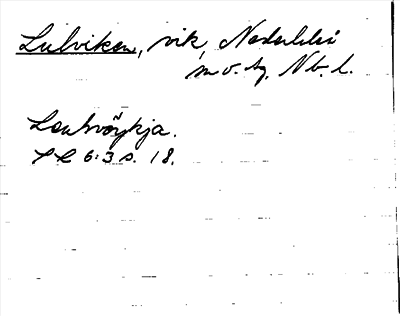 Lulviken, vik, Nederluleå
m.v. tg, Nb. l.
Leuhvöykja.
SL 6:3 s. 18.